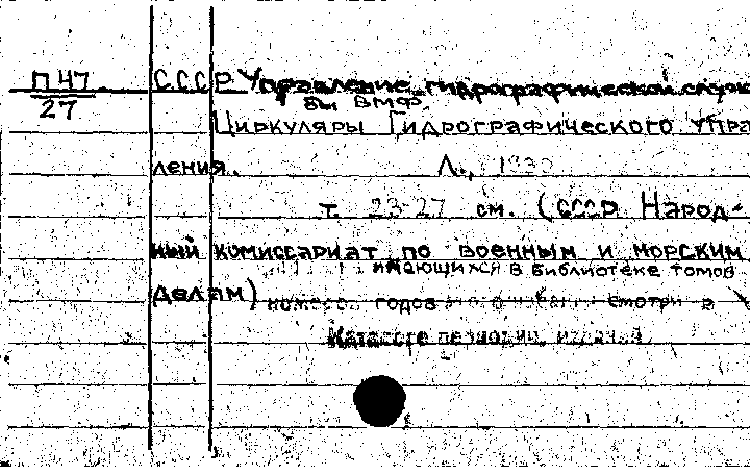 П47. СССР Управление гидрографической служ
27 ВМФ.
Циркуляры Гидрографического Упра
ления. Л.,
т. 23-27 см. (СССР Народ-
ный комиссариат по военным и морским
имающихся в библиотеке томов
делам) годов смотри в
Каталоге